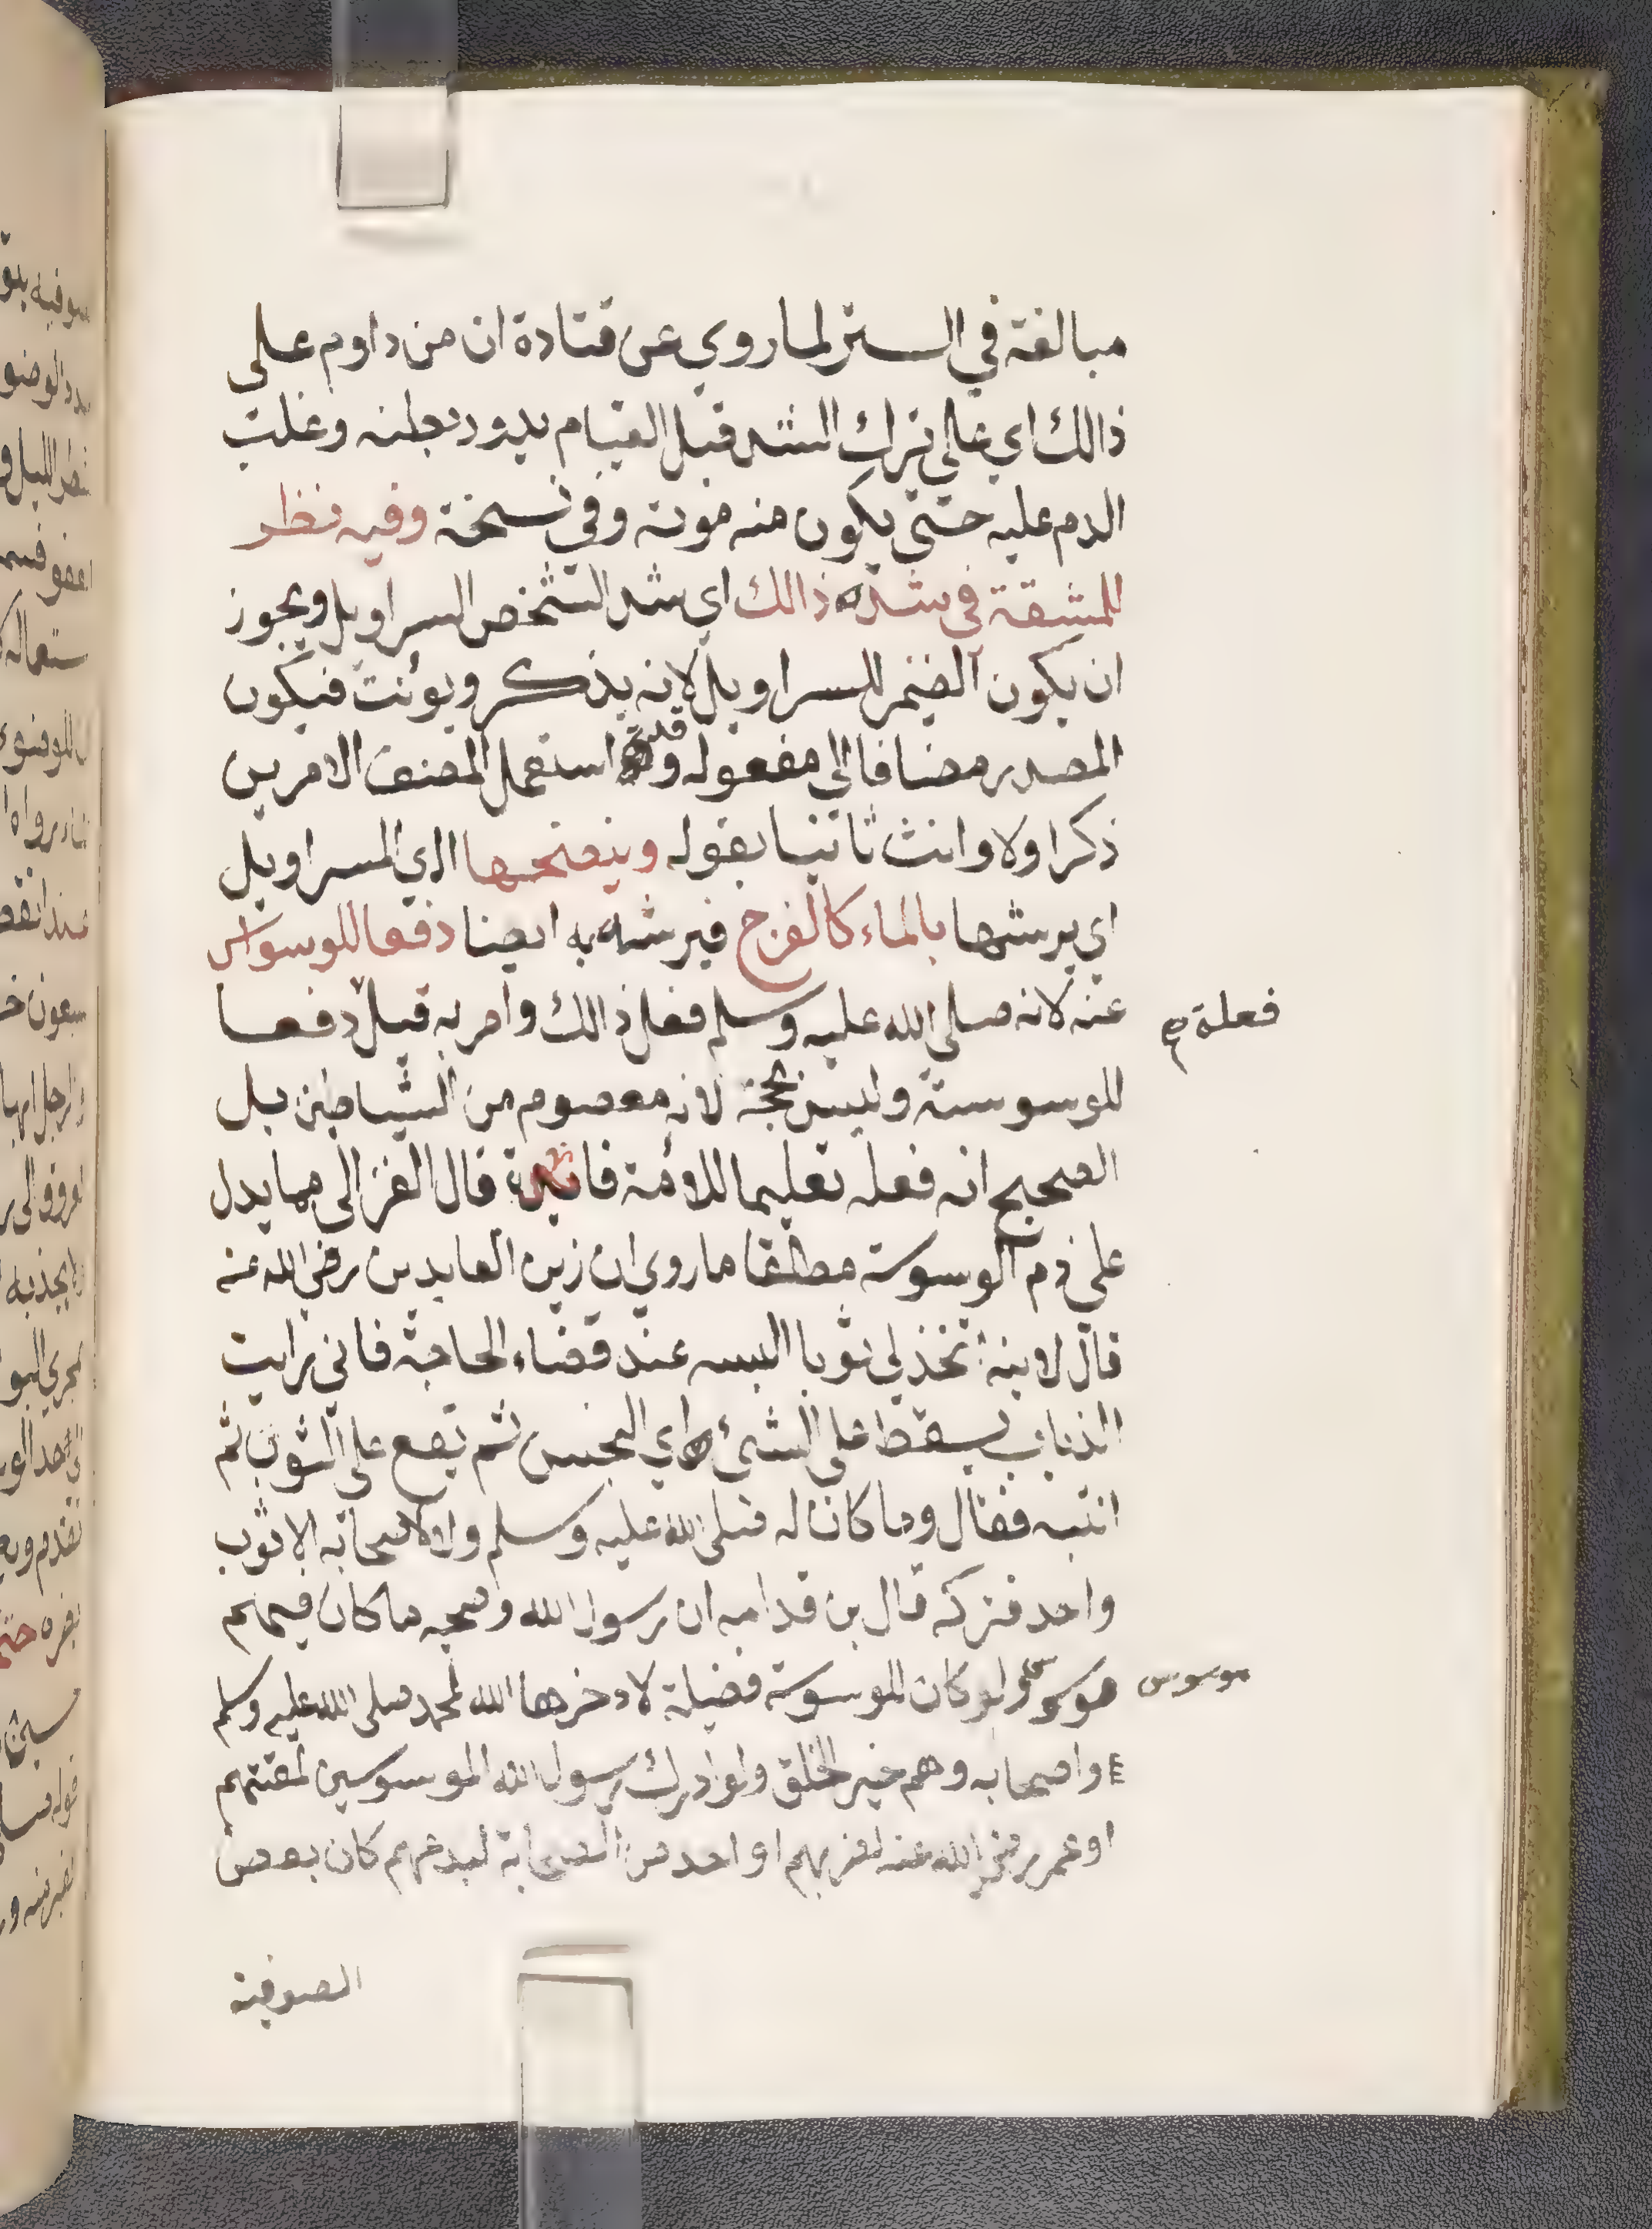 مبالغة في الستر لما روي عن قتادة ان من داوم على
ذالك اي على ترك الشد قبل القيام يدود بطنه وغلب
الدم عليه حتى يكون منه موته وفي نسخة وفيه نظر
للمشقة في شده ذالك اي شد الشخص السراويل ويجوز
ان يكون الضمر للسراويل لانه يذكر ويؤنث فيكون
المصدر مضافا الى مفعوله وقد استعمل المصنف الامرين
ذكرا ولا وانث ثانيا بقوله وينضحها اي السراويل
اي يرشها بالماء كالفرج فيرشه به ايضا دفعا للوسواس
عنه لانه صلى الله عليه وسلم فعل ذالك وامر به قيل دفعا
فعلة
للوسوسة وليس بحجة لانه معصوم من الشياطين بل
الصحيح انه فعله تعليما للاؤمة فائدة قال الغزالى مما يدل
على ذم الوسوسة مطلقا ما روي ان زين العابدين رضي الله عنه
قال لابنه تخذ لي ثوبا البسه عند قضاء الحاجة فاني رايت
الذباب يسقط على الشئ اي النجس ثم تقع على الثوب ثم
انتبه فقال وما كان له صلى الله عليه وسلم ولا لاصحابه الا ثوب
واحد فتركه قال بن قدامه ان رسول الله وصحبه ما كان فيهم
موسوس
ولو كان للوسوسة فضيلة لادخرها الله لمحمد صلى الله عليه وسلم
واصحابه وهم خير الخلق ولو ادرك رسول الله الموسوسين لمقتهم
او عمر رضي الله عنه لضربهم او احد من الصحابة لبدعهم كان بعض
الصوفية